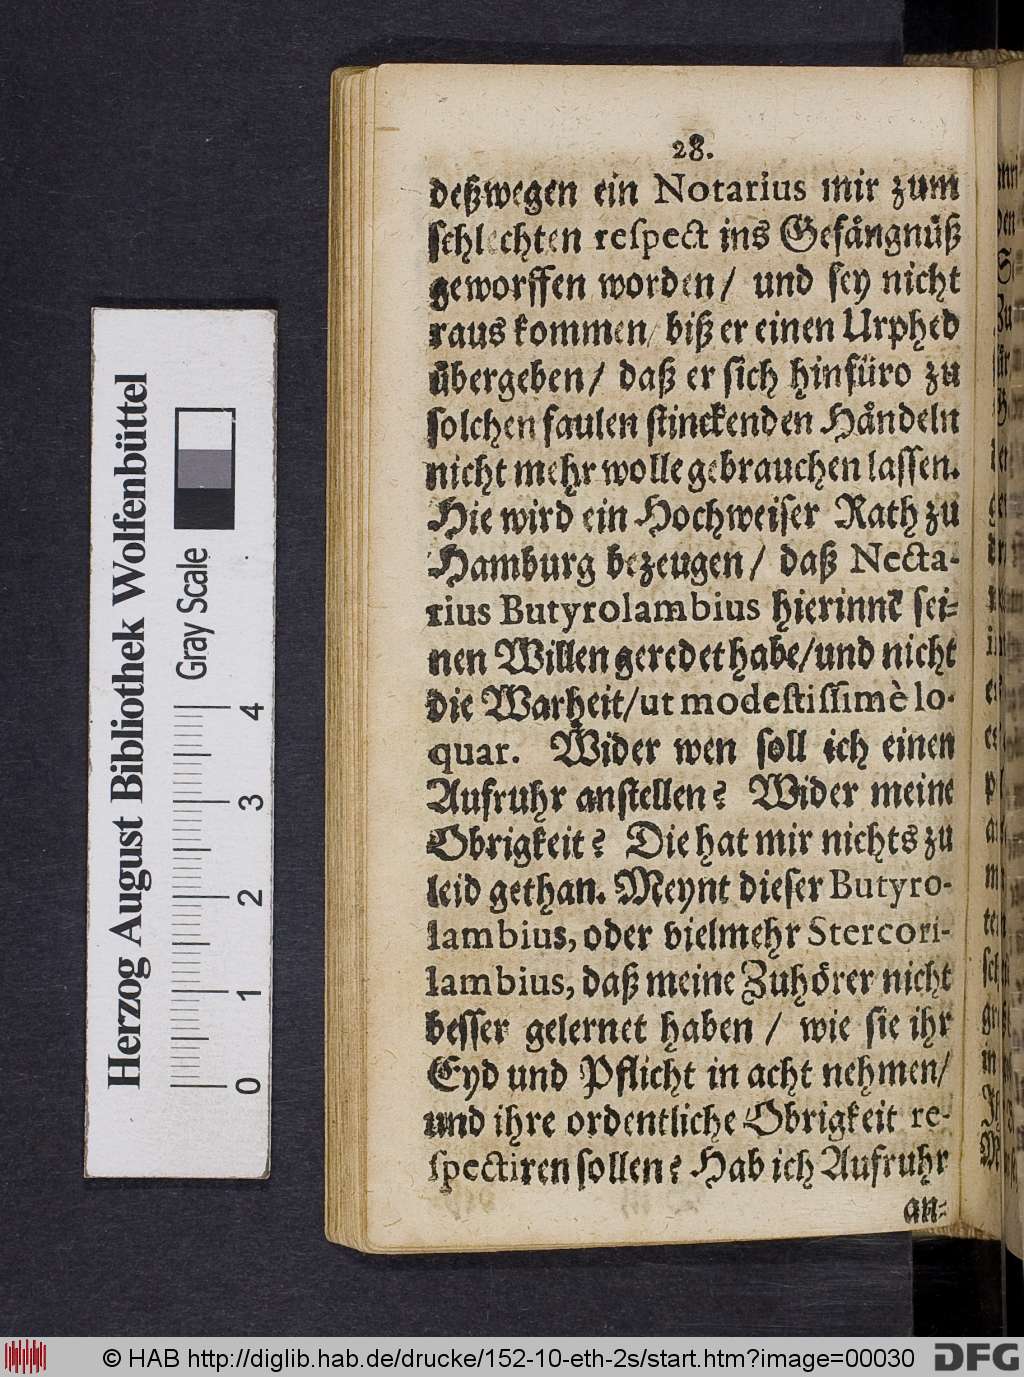 28.
deßwegen ein Notarius mir zum
schlechten respect ins Gefängnüß
geworffen worden / und sey nicht
raus kommen / biß er einen Urphed
übergeben / daß er sich hinfüro zu
solchen faulen stinckenden Händeln
nicht mehr wolle gebrauchen lassen.
Hie wird ein Hochweiser Rath zu
Hamburg bezeugen / daß Necta-
rius Butyrolambius hierinnē sei-
nen Willen geredet habe / und nicht
die Warheit / ut modestissimè lo-
quar. Wider wen soll ich einen
Aufruhr anstellen? Wider meine
Obrigkeit? Die hat mir nichts zu
leid gethan. Meynt dieser Butyro-
lambius, oder vielmehr Stercori-
lambius, daß meine Zuhörer nicht
besser gelernet haben / wie sie ihr
Eyd und Pflicht in acht nehmen /
und ihre ordentliche Obrigkeit re-
spectiren sollen? Hab ich Aufruhr
an-
Herzog August Bibliothek Wolfenbüttel
Gray Scale
0 1 2 3 4
© HAB http://diglib.hab.de/drucke/152-10-eth-2s/start.htm?image=00030
DFG